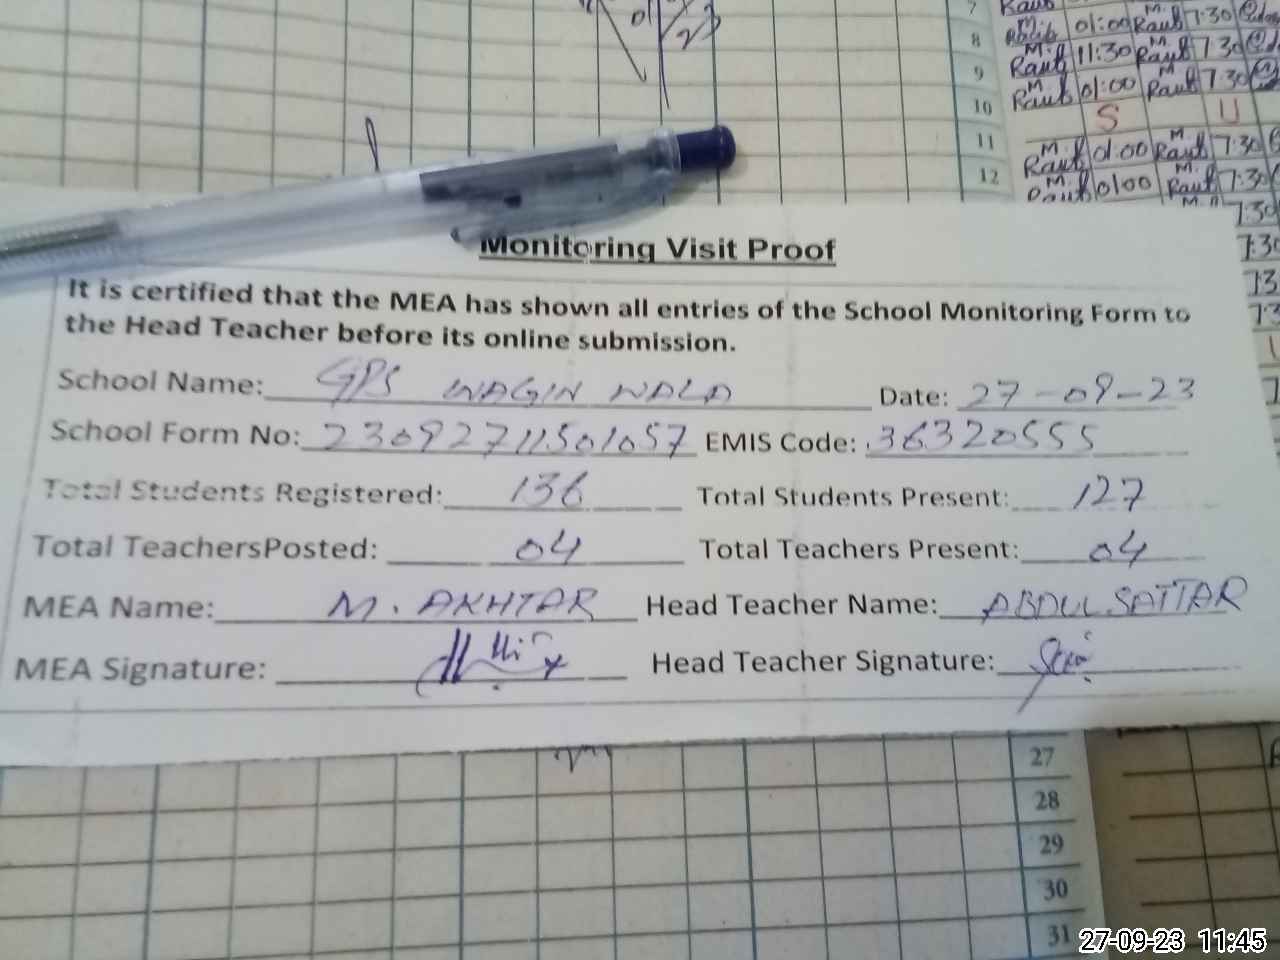 7
8
9
10
11
12
M. Raub 01:00 M. Raub 7:30
M. Raub 11:30 M. Raub 7:30
M. Raub 01:00 M. Raub 7:30
S U
M. Raub 01:00 M. Raub 7:30
M. 01:00 M. Raub 7:30
Monitoring Visit Proof
It is certified that the MEA has shown all entries of the School Monitoring Form to
the Head Teacher before its online submission.
School Name: GPS WAGIN WALA Date: 27-09-23
School Form No: 23092711501057 EMIS Code: 36320555
Total Students Registered: 136 Total Students Present: 127
Total TeachersPosted: 04 Total Teachers Present: 04
MEA Name: M. AKHTAR Head Teacher Name: ABDUL SATTAR
MEA Signature: Head Teacher Signature:
27
28
29
30
31
27-09-23 11:45